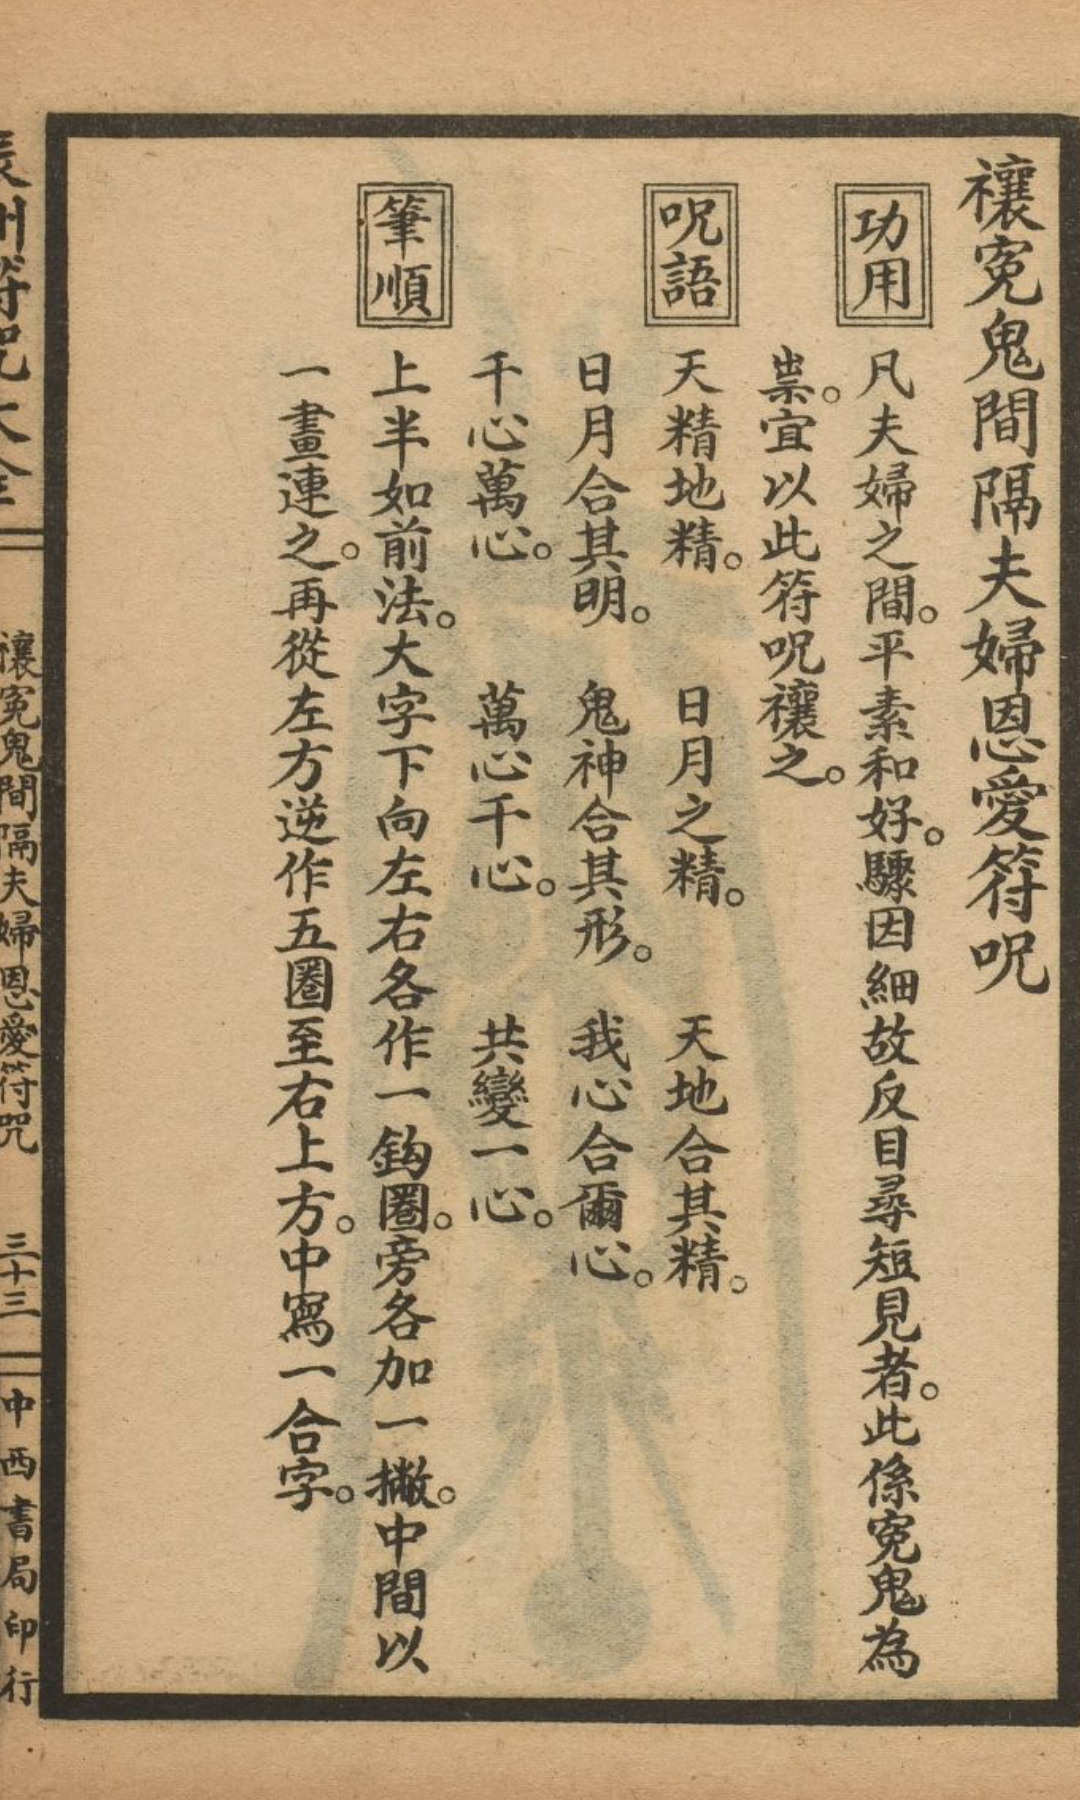 禳冤鬼間隔夫婦恩愛符呪
功用
凡夫婦之間。平素和好。驟因細故反目尋短見者。此係冤鬼為
祟。宜以此符呪禳之。
呪語
天精地精。 日月之精。 天地合其精。
日月合其明。 鬼神合其形。 我心合爾心。
千心萬心。 萬心千心。 共變一心。
筆順
上半如前法。大字下向左右各作一鈎圈。旁各加一撇。中間以
一畫連之。再從左方逆作五圈至右上方。中寫一合字。
州符咒大全
禳冤鬼間隔夫婦恩愛符咒
三十三
中西書局印行